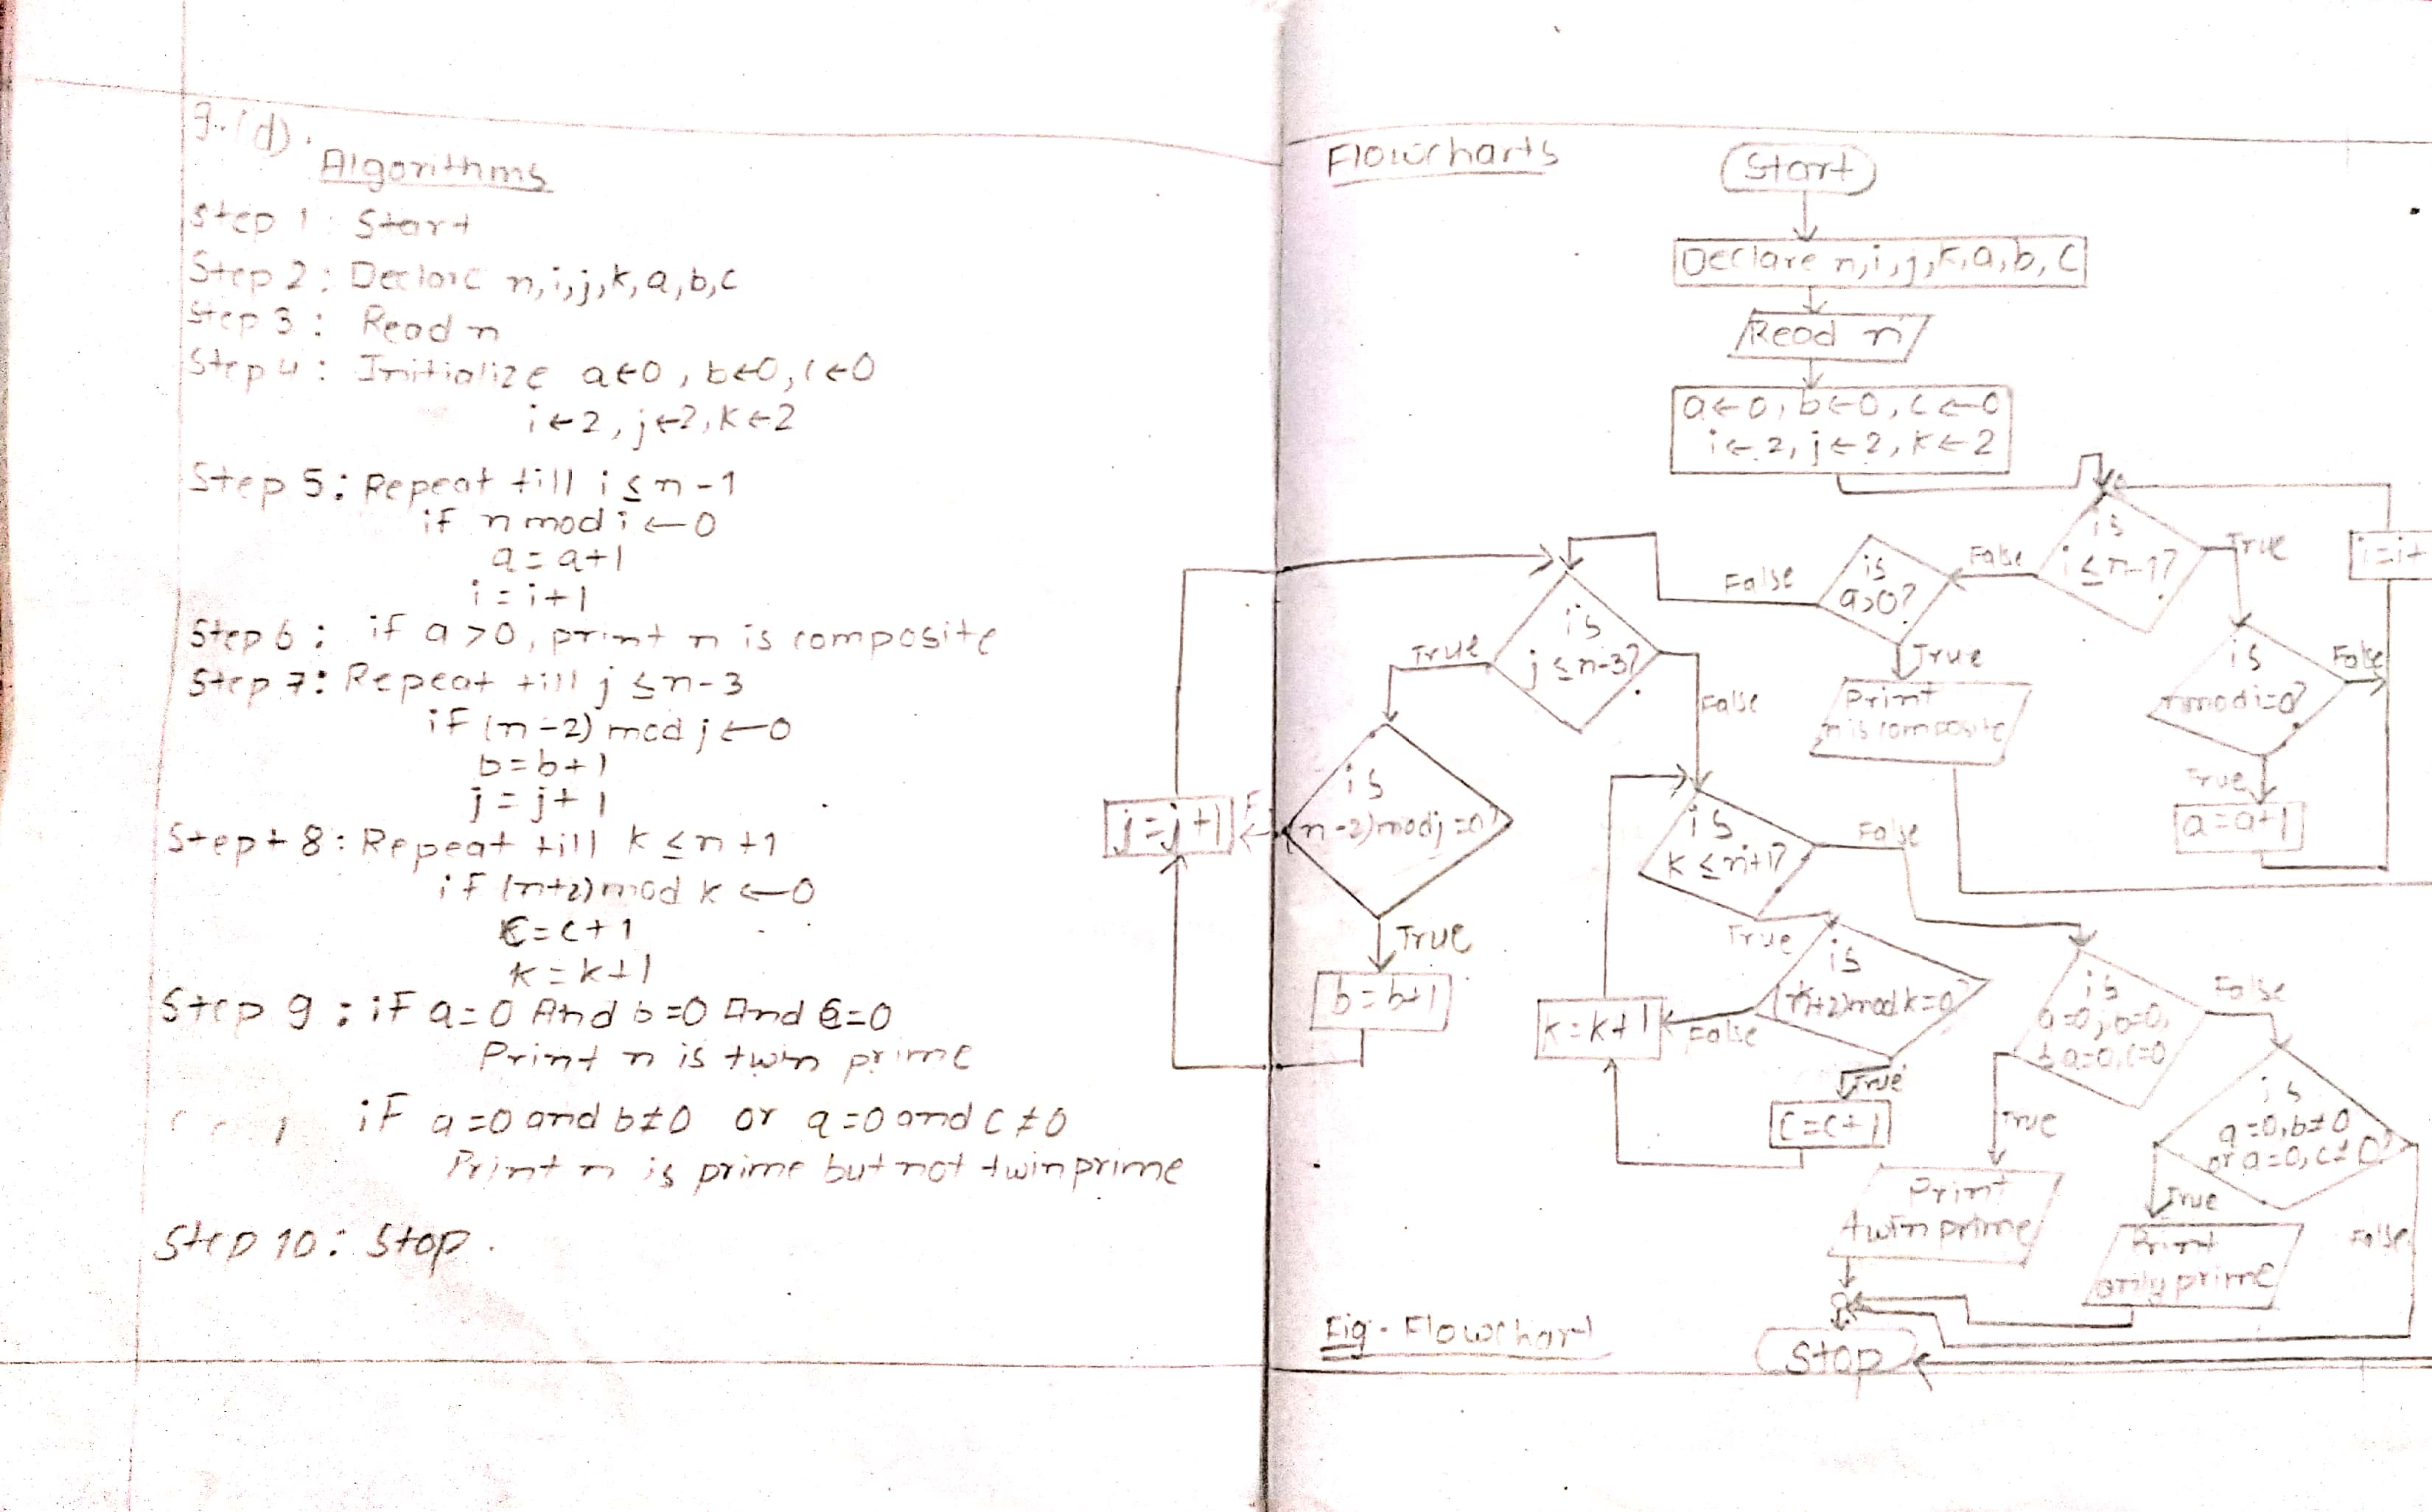 9.(d).
Algorithms
Step 1: Start
Step 2: Declare n,i,j,k,a,b,c
Step 3: Read n
Step 4: Initialize a←0, b←0, c←0
i←2, j←2, k←2
Step 5: Repeat till i≤n-1
if n mod i ←0
a=a+1
i=i+1
Step 6: if a>0, print n is composite
Step 7: Repeat till j≤n-3
if (n-2) mod j ←0
b=b+1
j=j+1
Stept 8: Repeat till k≤n+1
if (n+2) mod k ←0
c=c+1
k=k+1
Step 9: if a=0 And b=0 And c=0
Print n is twin prime
if a=0 and b≠0 or a=0 and c≠0
Print n is prime but not twin prime
Step 10: Stop.
Flowcharts
Start
Declare n,i,j,k,a,b,c
Read n
a←0, b←0, c←0
i←2, j←2, k←2
is
i≤n-1?
True
False
i=i+
is
a>0?
False
True
Print
n is composite
is
n mod i=0?
False
True
a=a+1
is
j≤n-3?
True
False
is
(n-2) mod j=0?
F
j=j+1
True
b=b+1
is
k≤n+1?
False
True
is
(n+2) mod k=0?
False
k=k+1
True
c=c+1
is
a=0, b=0,
& a=0, c=0
False
True
Print
twin prime
is
a=0, b≠0
or a=0, c≠0?
True
False
Print
only prime
Stop
Fig- Flowchart